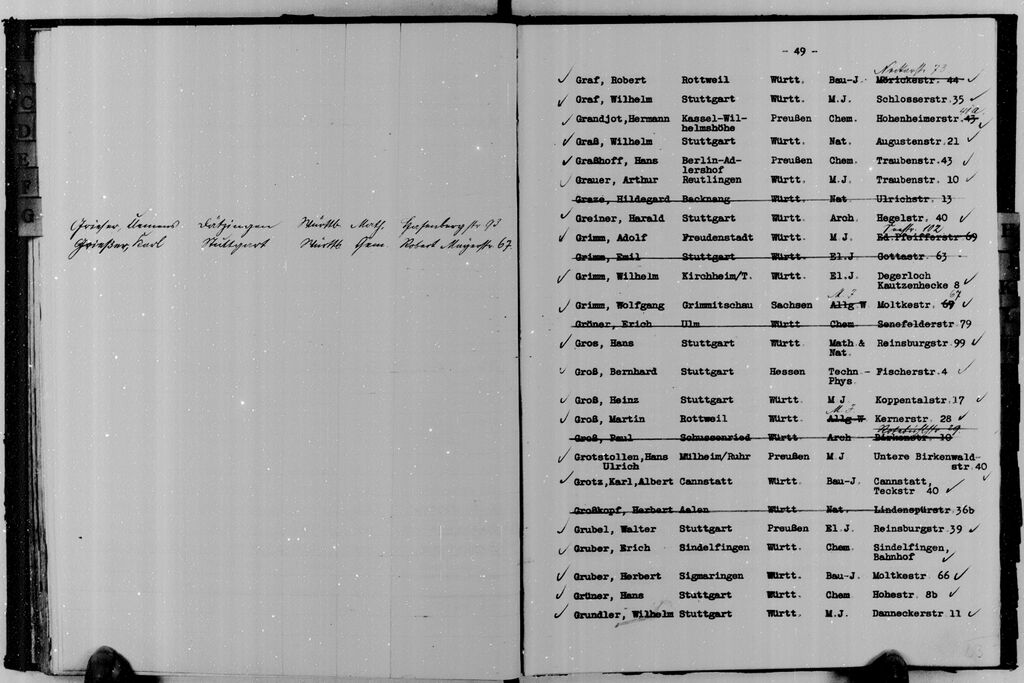 C
D
E
F
G
Grieser, Clemens Dätzingen Württb. Math. Hasenbergstr 93
Grießer, Karl Stuttgart Württb. Gem. Robert Mayerstr 67
- 49 -
Neckarstr. 73
✓ Graf, Robert Rottweil Württ. Bau-J. Mörickestr. 44 ✓
✓ Graf, Wilhelm Stuttgart Württ. M.J. Schlosserstr.35 ✓
✓ Grandjot,Hermann Kassel-Wil- Preußen Chem. Hohenheimerstr.43 41a ✓
helmshöhe
✓ Graß, Wilhelm Stuttgart Württ. Nat. Augustenstr.21 ✓
✓ Graßhoff, Hans Berlin-Ad- Preußen Chem. Traubenstr.43 ✓
lershof
✓ Grauer, Arthur Reutlingen Württ. M.J Traubenstr. 10 ✓
Graze, Hildegard Backnang Württ. Nat Ulrichstr. 13
✓ Greiner, Harald Stuttgart Württ. Arch. Hegelstr. 40 ✓
✓ Grimm, Adolf Freudenstadt Württ. M J. Ed.Pfeifferstr 69
102
Grimm, Emil Stuttgart Württ. El.J Cottastr. 63
✓ Grimm, Wilhelm Kirchheim/T. Württ. El.J. Degerloch
Kautzenhecke 8 ✓
M.J 67
✓ Grimm, Wolfgang Grimmitschau Sachsen Allg W Moltkestr. 69 ✓
Gröner, Erich Ulm Württ Chem Senefelderstr 79
✓ Gros, Hans Stuttgart Württ. Math & Reinsburgstr.99 ✓
Nat.
✓ Groß, Bernhard Stuttgart Hessen Techn - Fischerstr.4 ✓
Phys.
✓ Groß, Heinz Stuttgart Württ. M J Koppentalstr.17 ✓
M.J
✓ Groß, Martin Rottweil Württ. Allg W Kernerstr. 28 ✓
29
Groß, Paul Schussenried Württ Arch Birkenstr. 10
✓ Grotstollen,Hans Mülheim/Ruhr Preußen M.J Untere Birkenwald-
Ulrich str.40 ✓
✓ Grotz,Karl,Albert Cannstatt Württ. Bau-J. Cannstatt,
Teckstr 40 ✓
Großkopf, Herbert Aalen Württ Nat. Lindenspürstr.36b
✓ Grubel, Walter Stuttgart Preußen El.J. Reinsburgstr.39 ✓
✓ Gruber, Erich Sindelfingen Württ. Chem. Sindelfingen,
Bahnhof ✓
✓ Gruber, Herbert Sigmaringen Württ. Bau-J. Moltkestr 66 ✓
✓ Grüner, Hans Stuttgart Württ. Chem Hohestr. 8b ✓
✓ Grundler, Wilhelm Stuttgart Württ. M.J. Danneckerstr 11 ✓